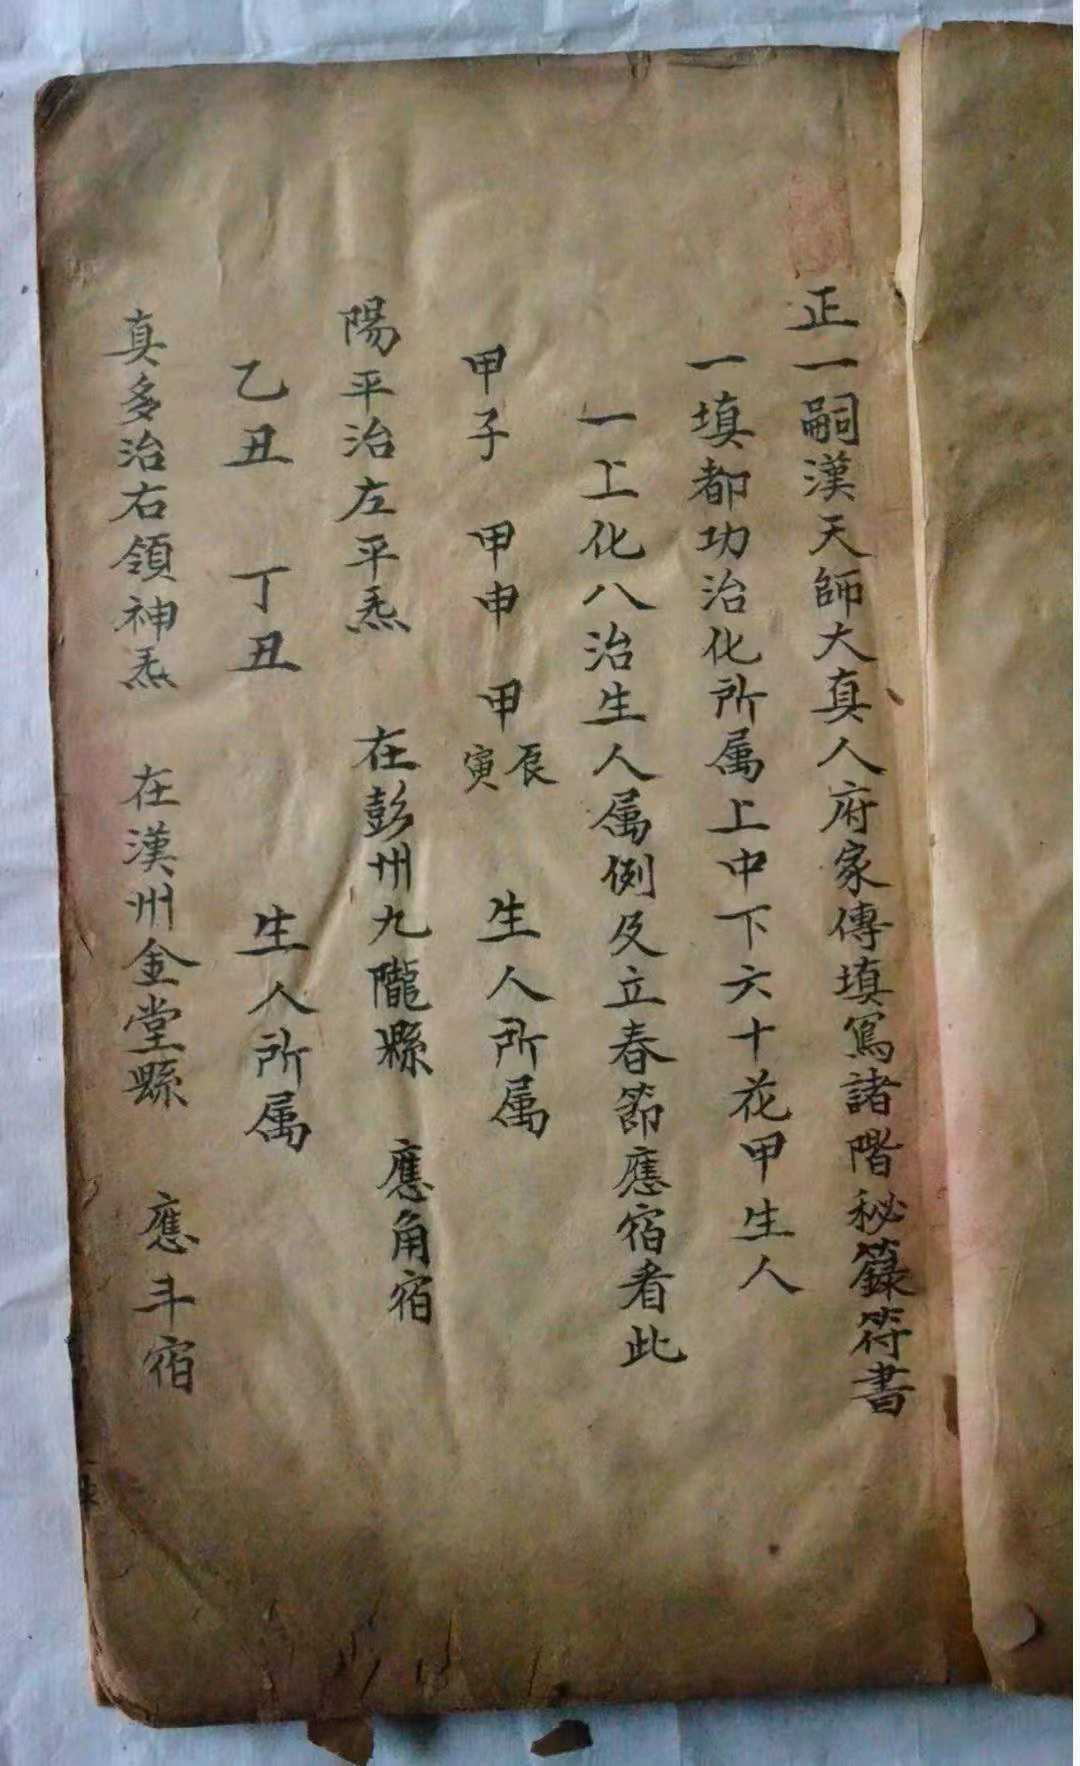 正一嗣漢天師大真人府家傳填寫諸階秘籙符書
一填都功治化所属上中下六十花甲生人
一上化八治生人属例及立春節應宿看此
甲子 甲申 甲寅辰 生人所属
陽平治左平炁 在彭州九隴縣 應角宿
乙丑 丁丑 生人所属
真多治右領神炁 在漢州金堂縣 應斗宿